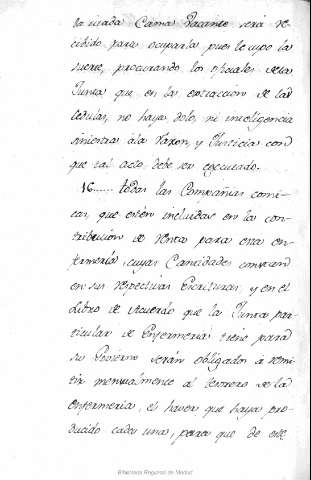 cama Vacante será re-
cibido para ocuparla pues le cupo la
suerte, procurando los oficiales dela
Junta que en la extraccion de las
cedulas, no haya dolo, ni inteligencia
siniestra ála razon, y Justicia con
que tal acto debe ser executado.
16...... todas las Compañias comi-
cas, que estén incluidas en la con-
tribucion de renta para esta en-
fermería, cuyas Cantidades constan
en sus respectivas Escrituras, y en el
Libro de Acuerdo que la Junta par-
ticular de Enfermeria tiene para
su Govierno serán obligados a remi-
tir mensualmente al tesorero de la
enfermeria, el haver que haya pro-
ducido cada una, para que de este
Biblioteca Regional de Madrid